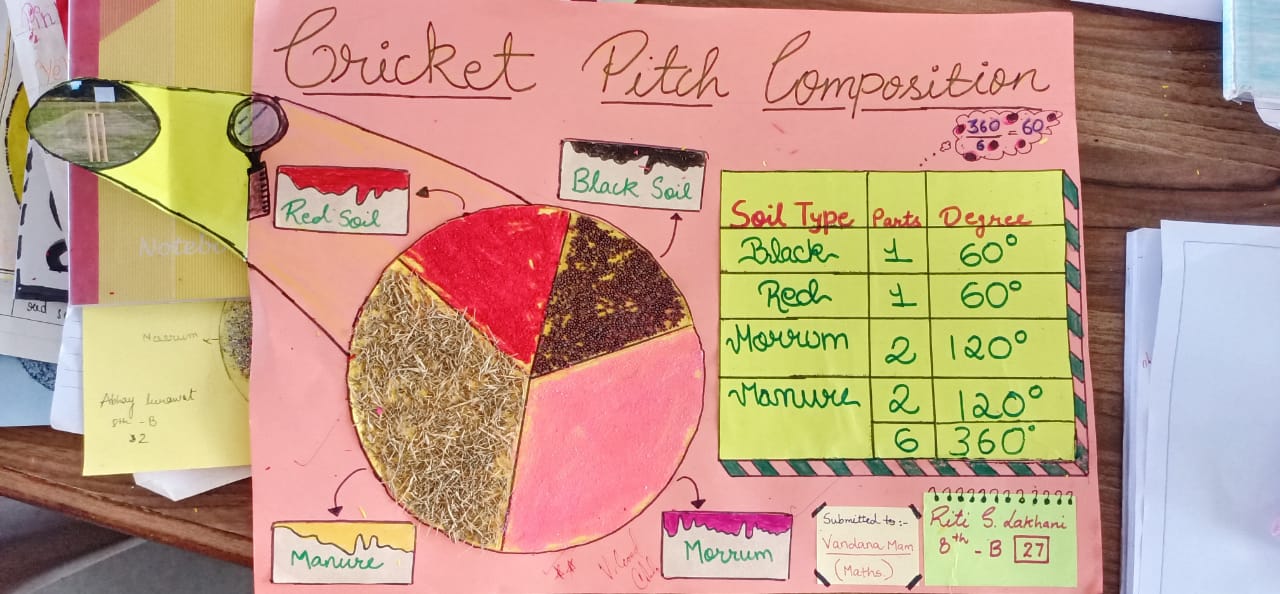 Cricket Pitch Composition
360/6 = 60
Red Soil
Black Soil
Soil Type Parts Degree
Black 1 60°
Red 1 60°
Morrum 2 120°
Manure 2 120°
6 360°
Manure
Morrum
Submitted to:-
Vandana Mam
(Maths.)
Riti S. Lakhani
8th - B 27
Morrum
Abhay
8th - B